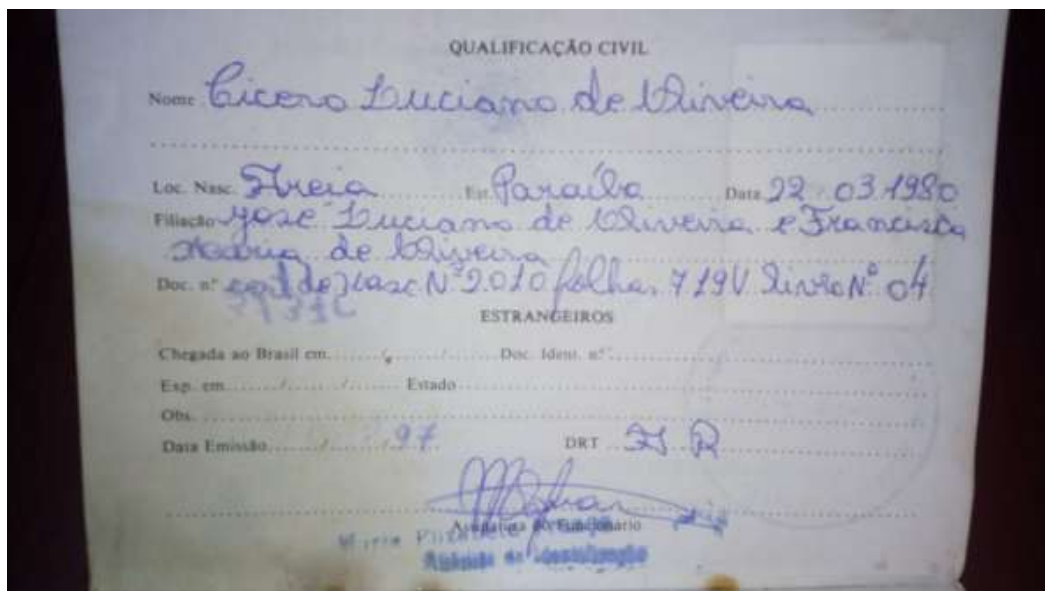 QUALIFICAÇÃO CIVIL
Nome Cicero Luciano de Oliveira
Loc. Nasc. Areia Est. Paraíba Data 22.03.1980
Filiação José Luciano de Oliveira e Francisca
Maria de Oliveira
Doc. nº cert de nasc Nº 2.010 folha. 719V Livro Nº 04
ESTRANGEIROS
Chegada ao Brasil em / / Doc. Ident. nº
Exp. em / / Estado
Obs.
Data Emissão / / 97 DRT
Assinatura do Funcionário